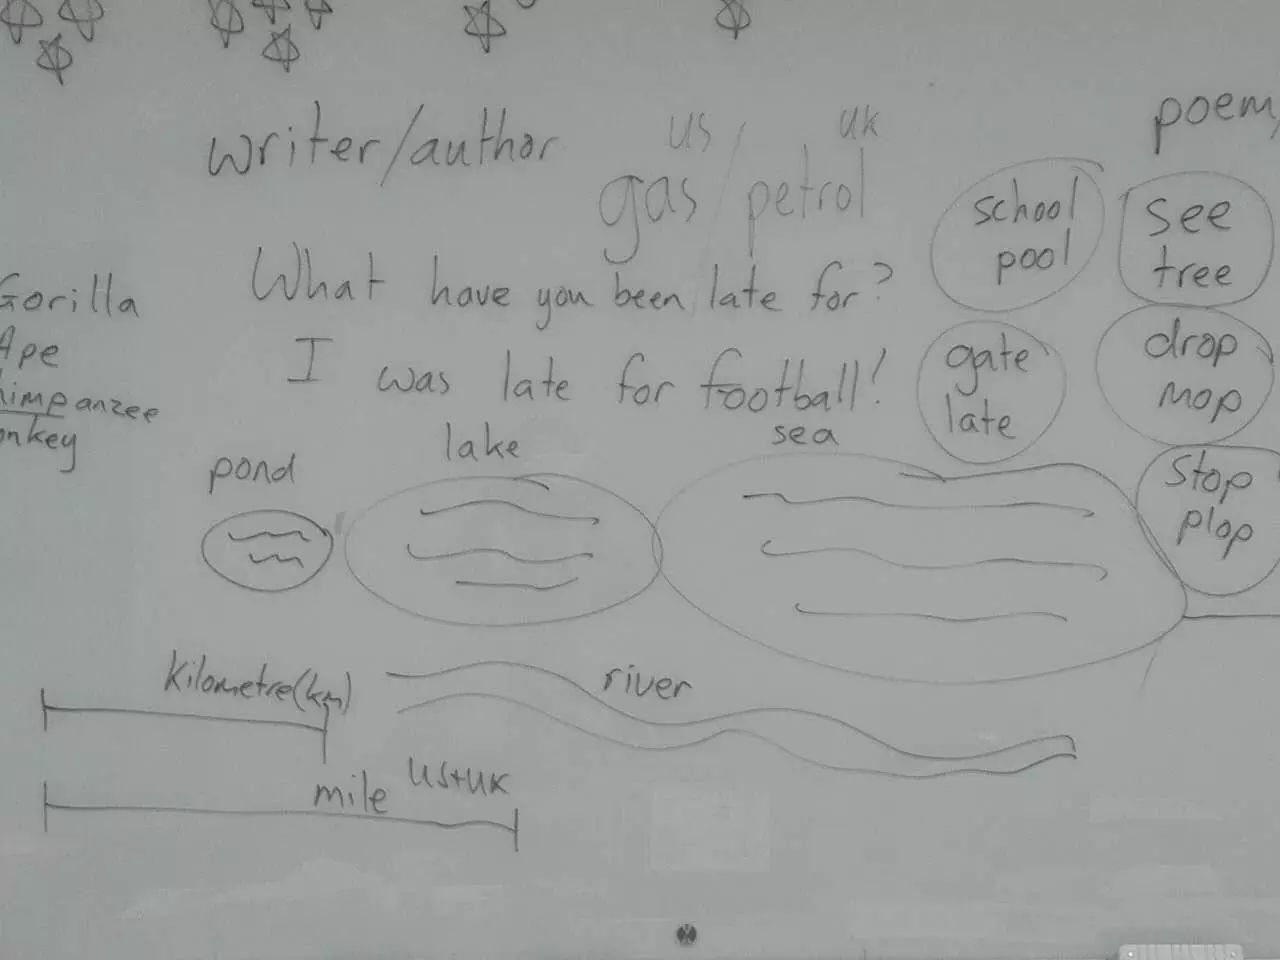 writer/author
us / uk
gas/petrol
What have you been late for?
I was late for football!
Gorilla
Ape
himpanzee
onkey
poem,
school
pool
see
tree
gate
late
drop
mop
stop
plop
pond
lake
sea
river
kilometre(km)
mile US+UK